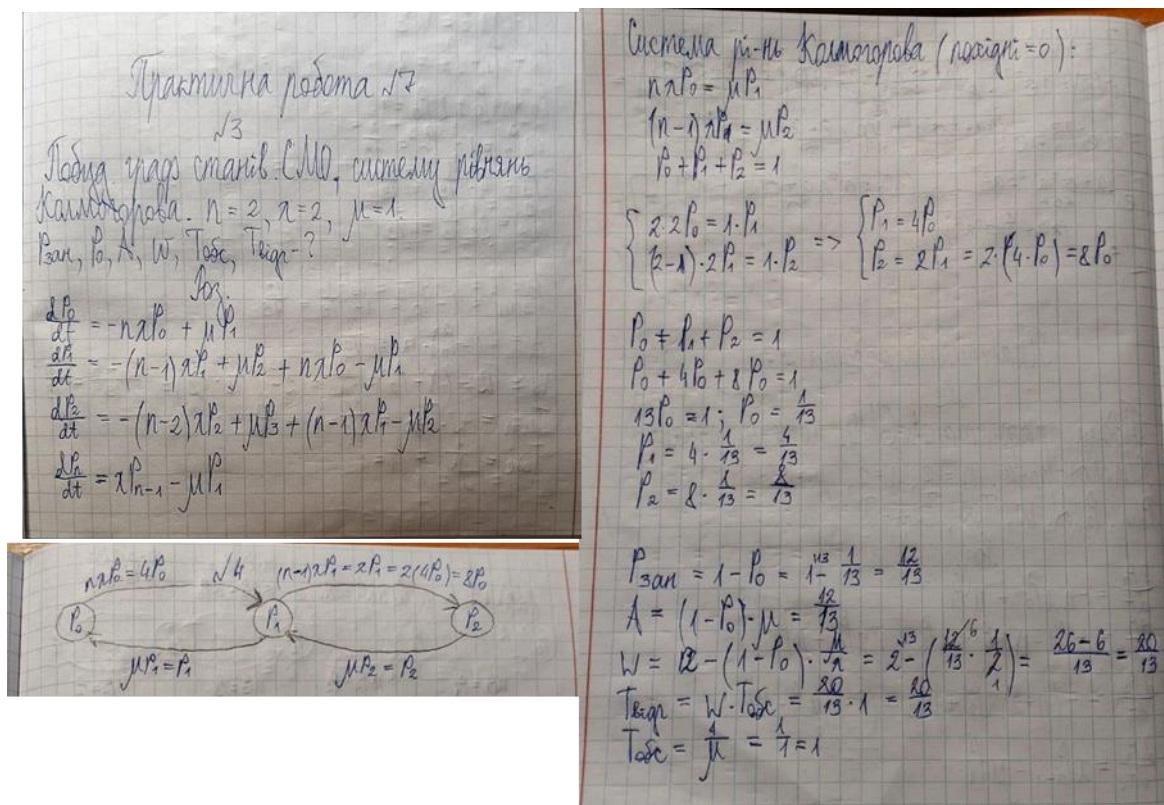 Практична робота №7
№3
Побуд. граф станів СМО, систему рівнянь
Колмогорова. n=2, λ=2, μ=1.
Pзан, P₀, A, W, Tобс, Tвідр-?
Роз.
dP₀/dt = -nλP₀ + μP₁
dP₁/dt = -(n-1)λP₁ + μP₂ + nλP₀ - μP₁
dP₂/dt = -(n-2)λP₂ + μP₃ + (n-1)λP₁ - μP₂
dPₙ/dt = λPₙ₋₁ - μP₁
nλP₀ = 4P₀ №4 (n-1)λP₁ = λP₁ = 2(4P₀) = 8P₀
P₀ P₁ P₂
μP₁ = P₁ μP₂ = P₂
Система рі-нь Колмогорова (похідні = 0):
nλP₀ = μP₁
(n-1)λP₁ = μP₂
P₀ + P₁ + P₂ = 1
{ 2·2P₀ = 1·P₁ => { P₁ = 4P₀
(2-1)·2P₁ = 1·P₂ P₂ = 2P₁ = 2·(4·P₀) = 8P₀
P₀ + P₁ + P₂ = 1
P₀ + 4P₀ + 8P₀ = 1
13P₀ = 1; P₀ = 1/13
P₁ = 4 · 1/13 = 4/13
P₂ = 8 · 1/13 = 8/13
Pзан = 1 - P₀ = 1 - 1/13 = 12/13
A = (1-P₀)·μ = 12/13
W = 2 - (1-P₀) · μ/λ = 2 - (12/13 · 1/2) = 26-6/13 = 20/13
Tвідр = W·Tобс = 20/13 · 1 = 20/13
Tобс = 1/μ = 1/1 = 1